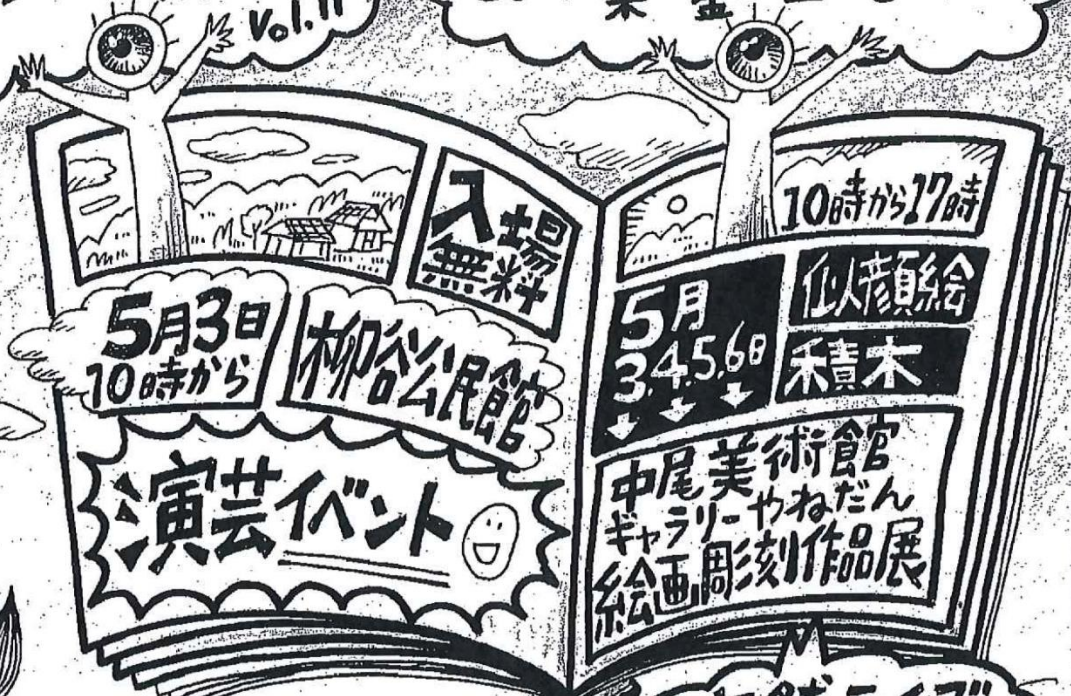 Vol.11
入場
無料
5月3日
10時から
柳谷公民館
演芸イベント
10時から17時
5月
3,4,5,6日
似顔絵
積木
中尾美術館
ギャラリーやねだん
絵画彫刻作品展